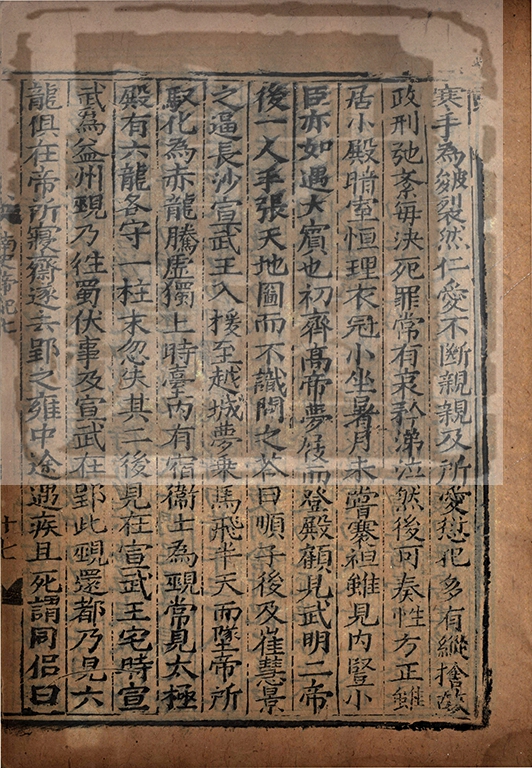 寒手為皴裂然仁愛不斷親親及所愛愆犯多有縱捨故
政刑弛紊每決死罪常有哀矜涕泣然後可奏性方正雖
居小殿暗室恒理衣冠小坐暑月未嘗褰袒雖見內豎小
臣亦如遇大賓也初齊高帝夢屐而登殿顧見武明二帝
後一人手張天地圖而不識問之荅曰順子後及崔慧景
之逼長沙宣武王入援至越城夢乘馬飛半天而墜帝所
馭化為赤龍騰虛獨上時臺內有宿衞士為覡常見太極
殿有六龍各守一柱末忽失其二後見在宣武王宅時宣
武為益州覡乃往蜀伏事及宣武在郢此覡還都乃見六
龍俱在帝所寢齋遂去郢之雍中途遇疾且死謂同侶曰
南史帝紀七
十七